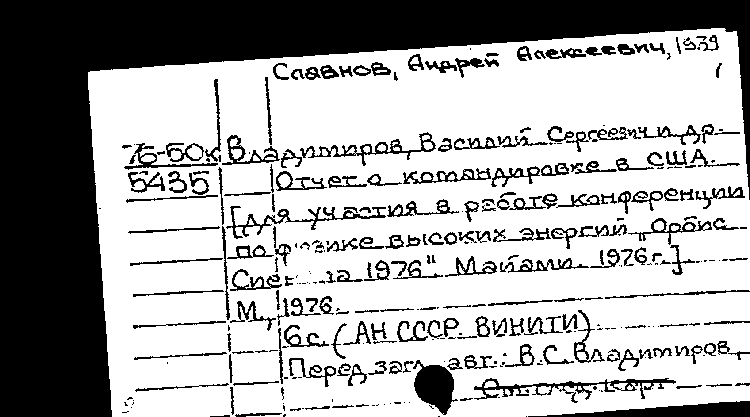 Славнов, Андрей Алексеевич, 1939
76-50к Владимиров, Василий Сергеевич и др.
5435 Отчет о командировке в США.
[для участия в работе конференции
по физике высоких энергий "Орбис
1976". Майами. 1976 г.].
М., 1976.
6 с. (АН СССР. ВИНИТИ).
Перед загл. авт.: В.С. Владимиров,
См. след. карт